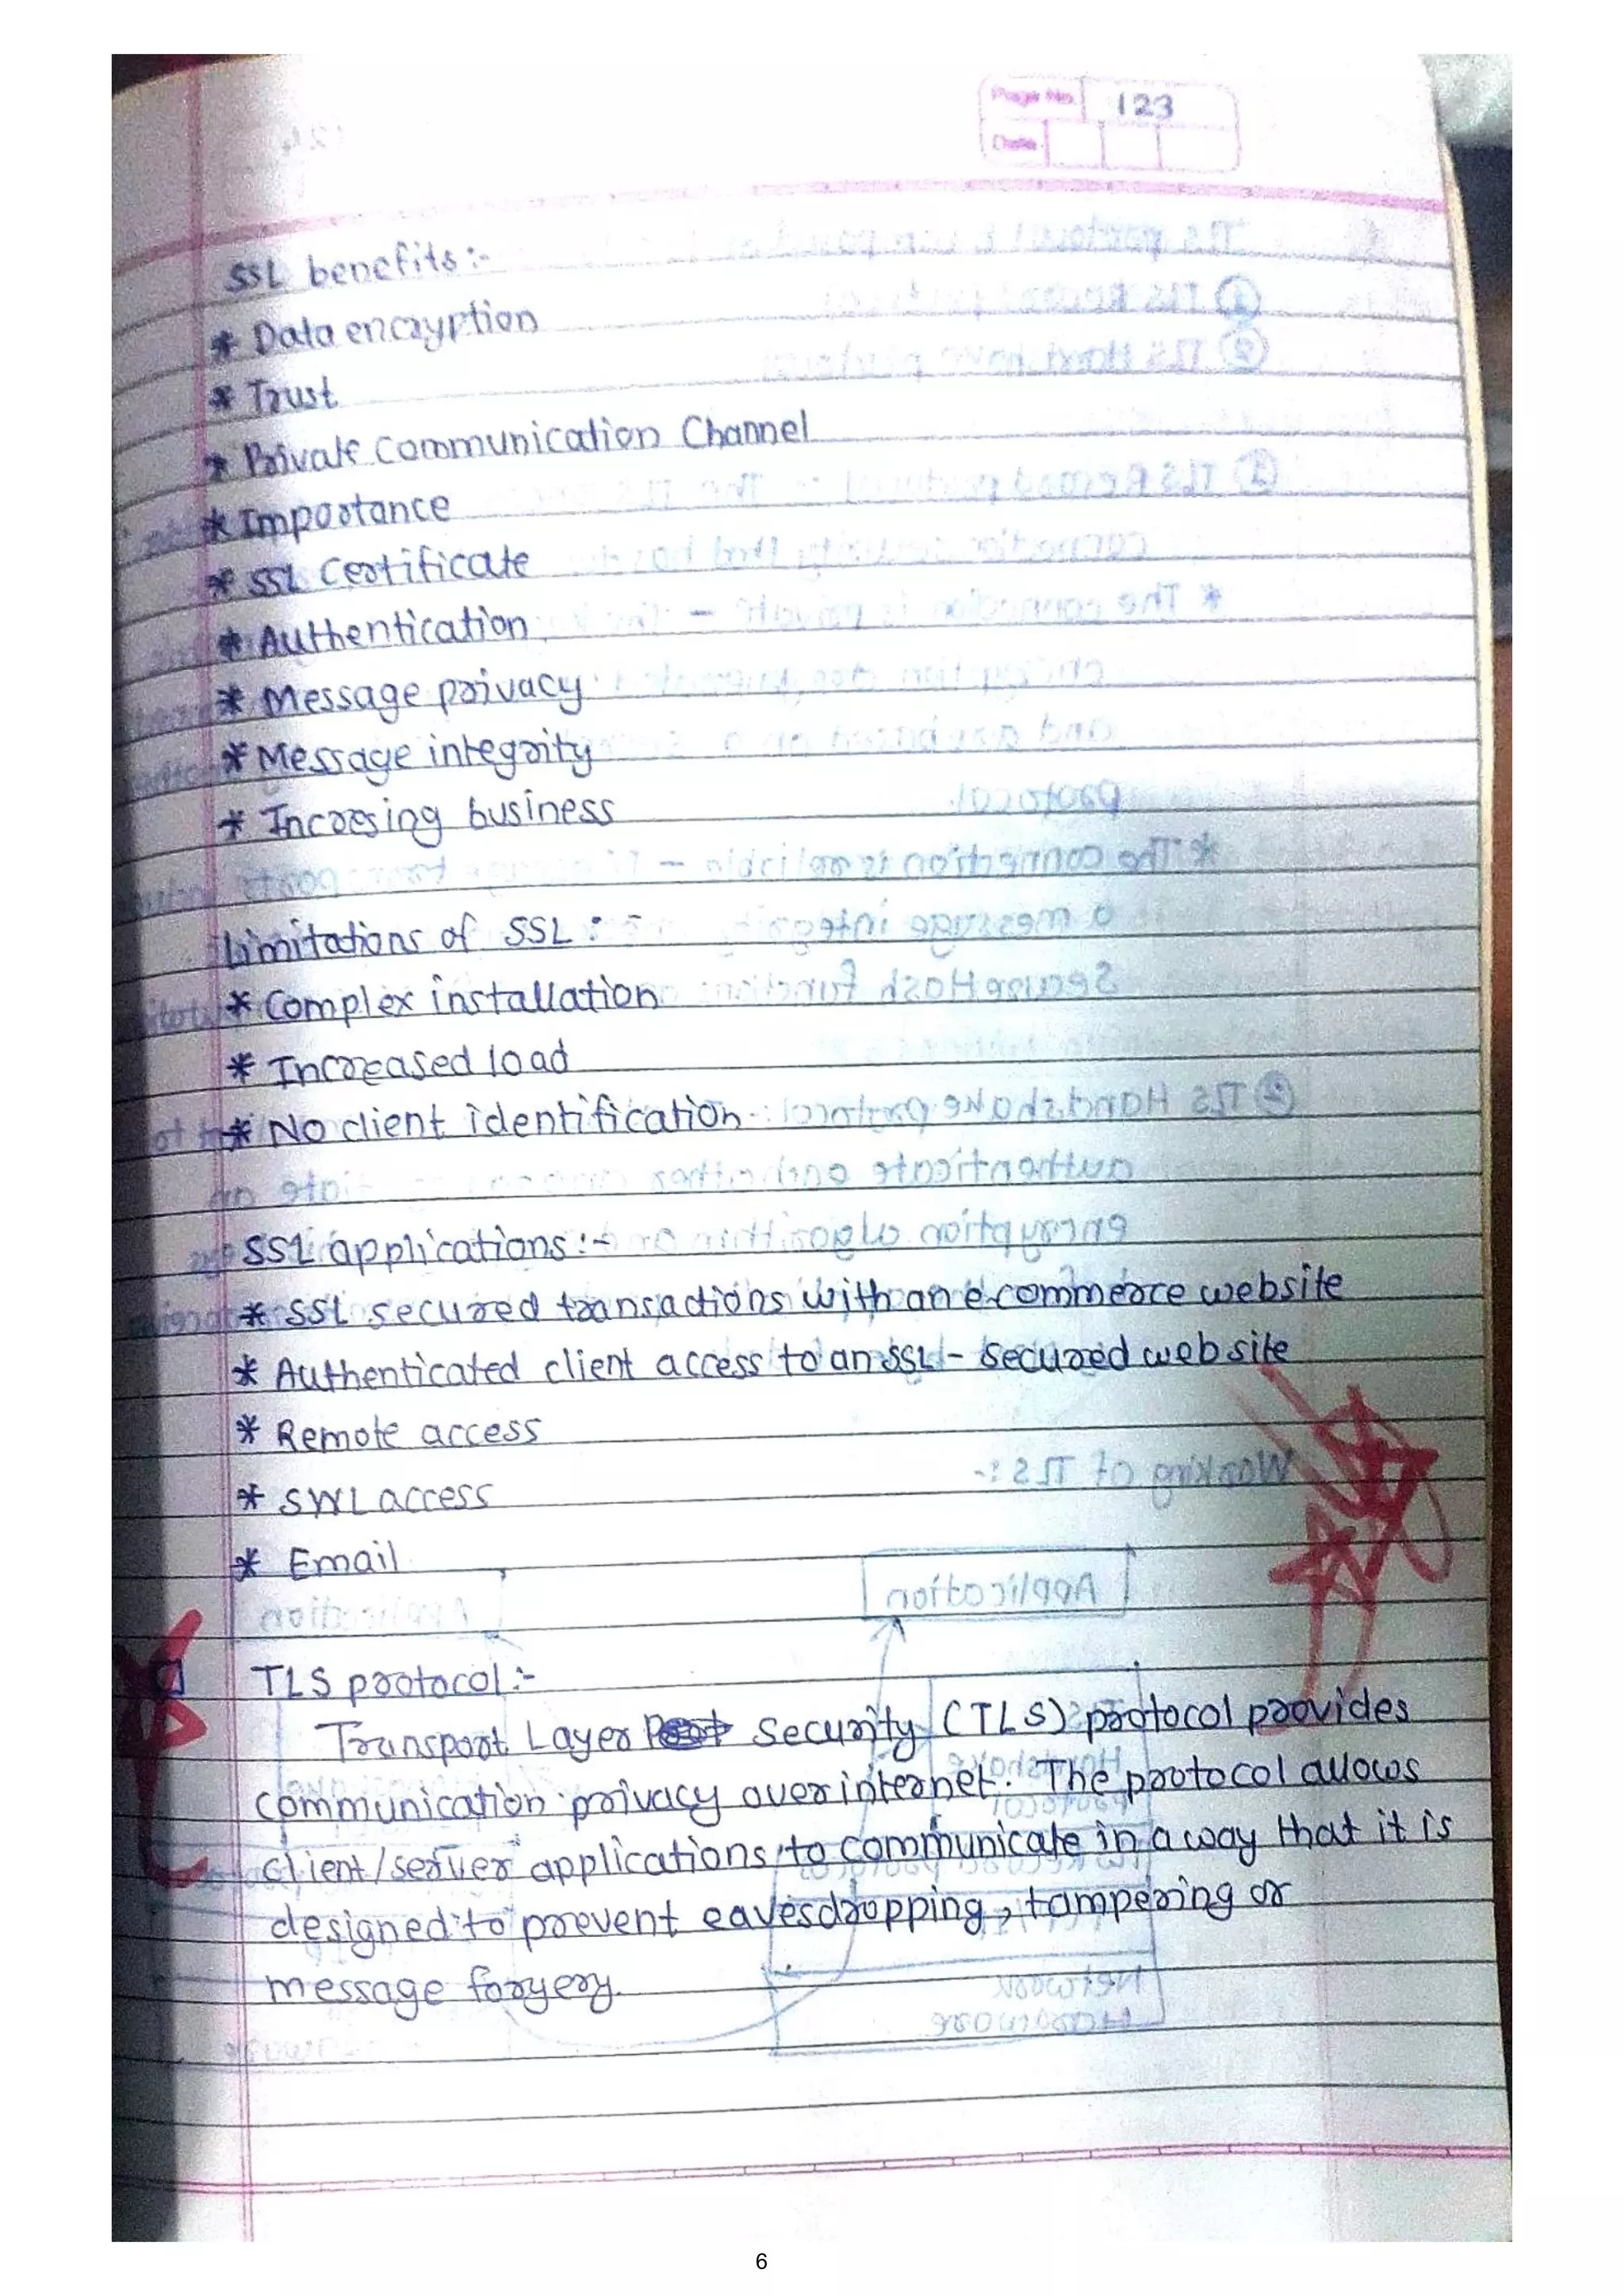 Page No. 123
Date
SSL benefits :-
* Data encryption
* Trust
* Private Communication Channel
* Importance
* SSL Certificate
* Authentication
* Message privacy
* Message integrity
* Incresing business
Limitations of SSL :-
* Complex installation
* Increased load
* No client identification
SSL applications :-
* SSL secured transactions with an e-commerce website
* Authenticated client access to an SSL - secured web site
* Remote access
* access
* Email
TLS protocol :-
Transport Layer Security (TLS) protocol provides
communication privacy over internet. The protocol allows
client/server applications to communicate in a way that it is
designed to prevent eavesdropping, tampering or
message forgery.
6